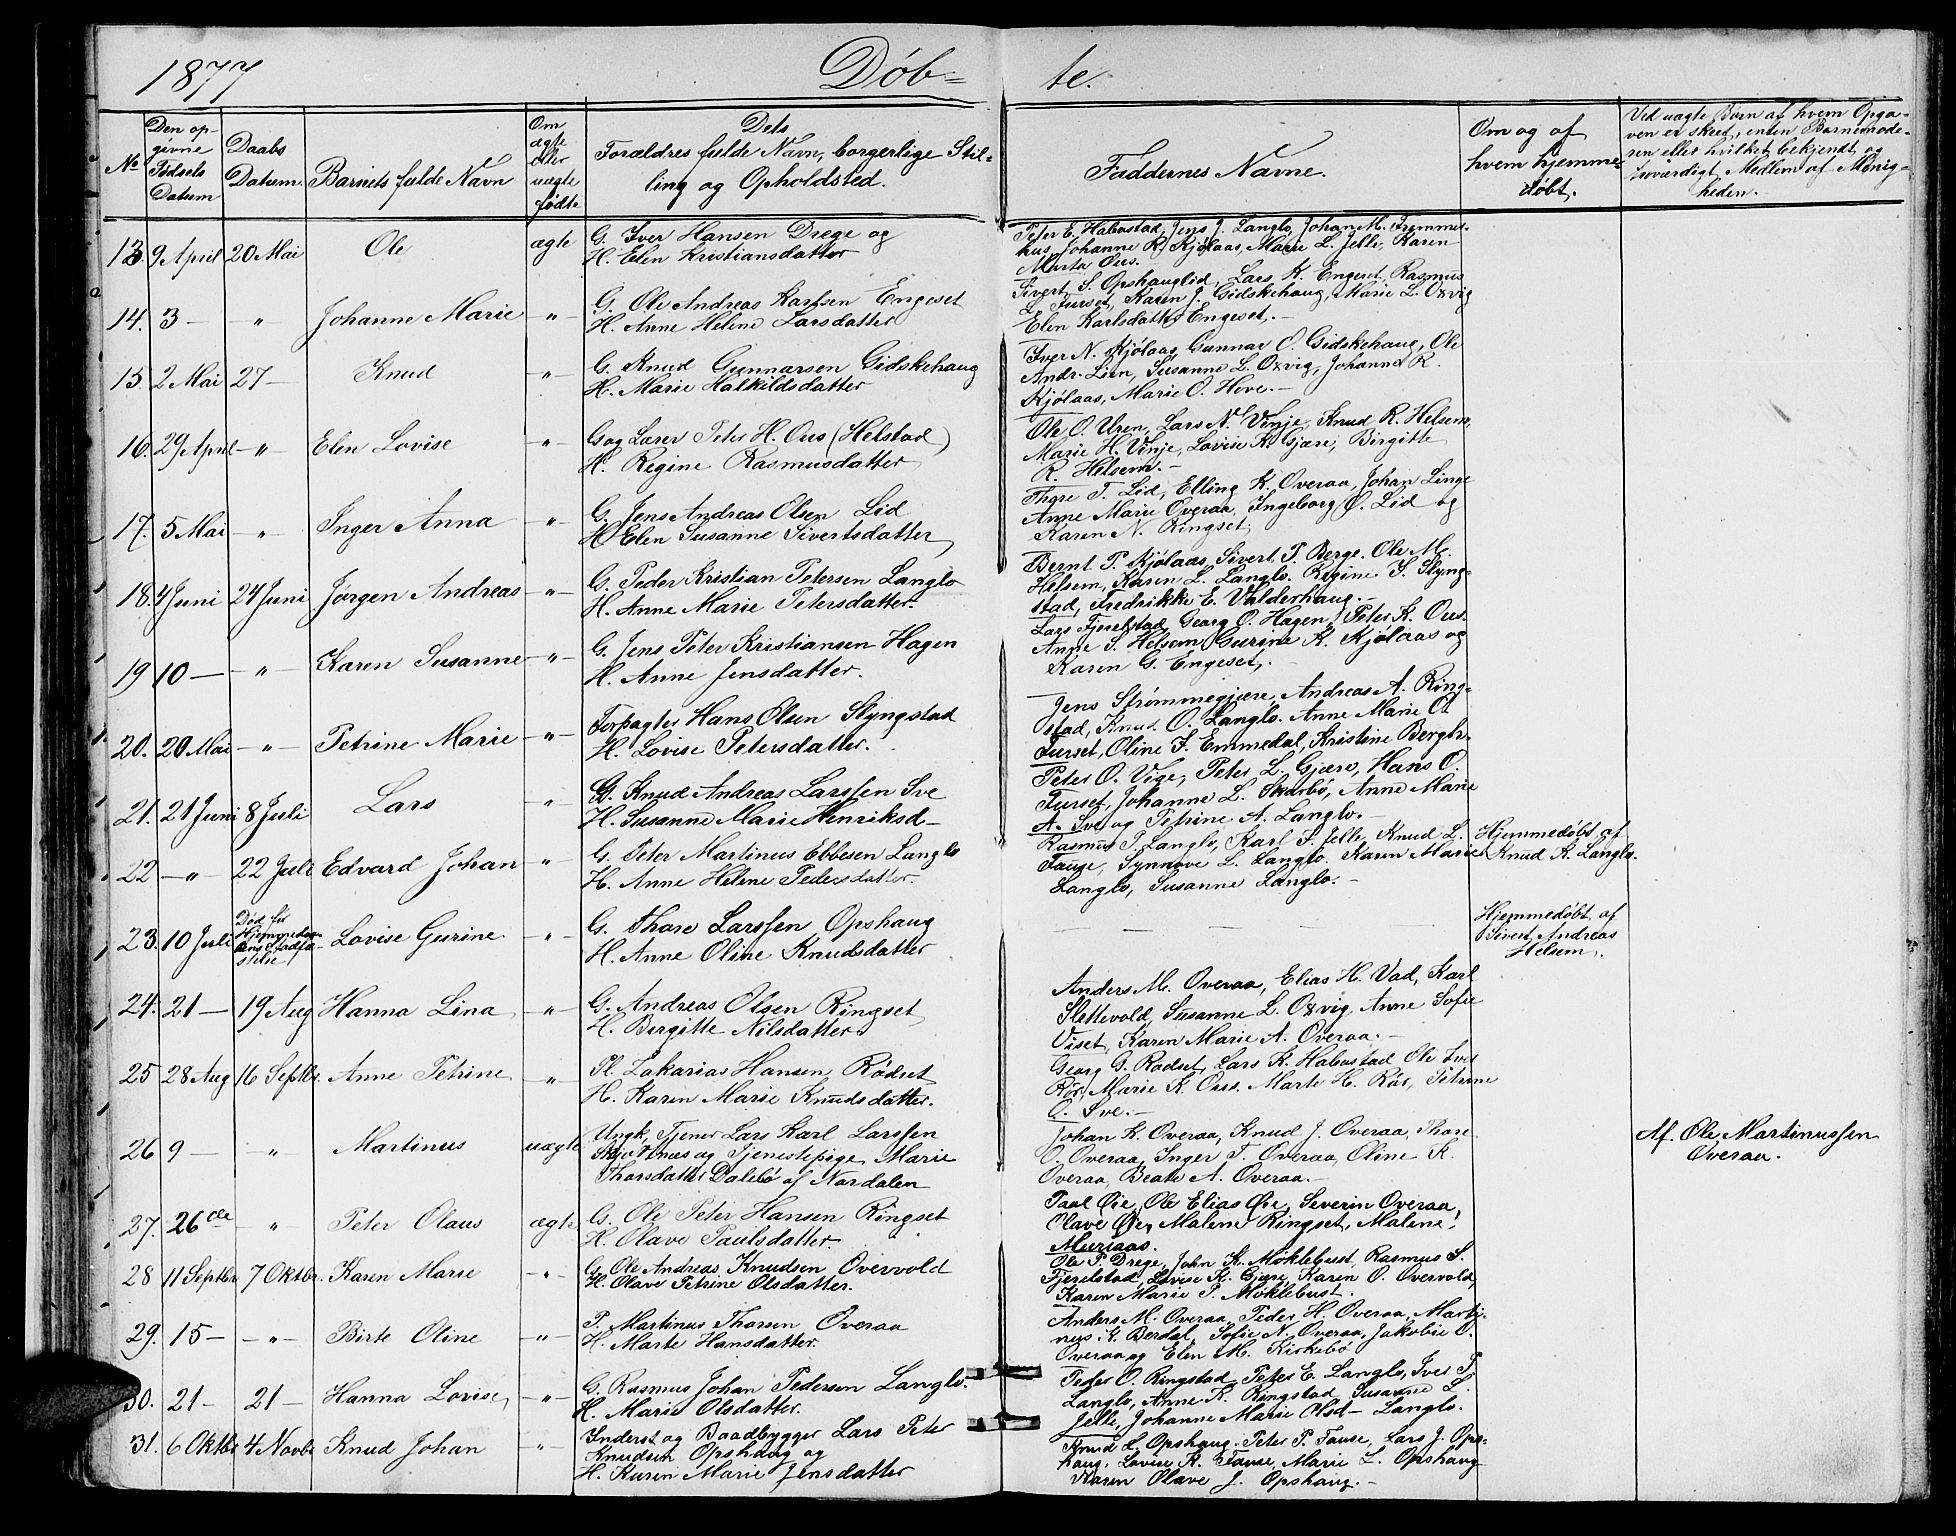 1877
Døb-
te.
No
Den op-
givne
Fødsels
Datum
Daabs
Datum.
Barnets fulde Navn
Om
ægte
eller
uægte
født.
Dets
Forældres fulde Navn, borgerlige Stil-
ling og Opholdsted.
Faddernes Navne.
Om og af
hvem hjemme-
døbt.
Ved uægte Børn af hvem Opga-
ven er skeet, enten Barnemode-
ren eller hvilket bekjendt og
troværdigt Medlem af Menig-
heden.
13. 9 April 20 Mai Ole ægte G. Iver Hansen Drege og
H. Elen Kristiansdatter
Peter E. Habostad, Jens J. Langlo, Johan M. Fremmer-
hus, Johanne R. Kjølaas, Marie L. Jelle, Karen
Marta Ous.
14. 3 — " Johanne Marie -"- G. Ole Andreas Karlsen Engeset
H. Anne Helene Larsdatter
Sivert S. Opshauglid, Lars K. Engeset, Rasmus
L. Furset, Karen J. Gidskehaug, Marie L. Oxvig
Elen Karlsdatter Engeset.-
15. 2 Mai 27 — Knud -"- G. Knud Gunnarsen Gidskehaug
H. Marie Halkildsdatter
Iver N. Kjølaas, Gunnar O. Gidskehaug, Ole
Andr. Lien, Susanne L. Oxvig, Johanne R.
Kjølaas, Marie O. Hove.-
16. 29 April -"- Elen Lovise -"- G. og Lærer Peter H. Ous (Helstad)
H. Regine Rasmusdatter
Ole O. Uren, Lars N. Vinje, Knud R. Helsem,
Marie H. Vinje, Lovise K. Gjære, Birgitte
R. Helsem.-
17. 5 Mai -"- Inger Anna -"- G. Jens Andreas Olsen Lid
H. Elen Susanne Sivertsdatter
Thore T. Lid, Elling K. Overaa, Johan Linge
Anne Marie Overaa, Ingeborg O. Lid og
Karen N. Ringset.
18. 4 Juni 24 Juni Jørgen Andreas -"- G. Peder Kristian Petersen Langlo
H. Anne Marie Petersdatter.
Bernt P. Kjølaas, Sivert P. Berge, Ole M.
Helsem, Karen L. Langlo. Regine S. Slyng-
stad, Fredrikke E. Valderhaug.-
19 10 — -"- Karen Susanne -"- G. Jens Peter Kristiansen Hagen
H. Anne Jensdatter.
Lars Fjerelstad, Georg O. Hagen, Peter K. Ous.
Anne S. Helsem, Gurine K. Kjølaas og
Karen G. Engeset.
20. 20 Mai -"- Petrine Marie -"- Forpagter Hans Olsen Slyngstad
H. Lovise Petersdatter.
Jens Strømmegjære, Andreas A. Ring-
stad, Knud O. Langlo. Anne Marie O
Furset, Oline J. Emmedal, Kristine Bergh.
21. 21 Juni 8 Juli Lars -"- G. Knud Andreas Larssen Sve
H. Susanne Marie Henriksd-
Peter O. Vige, Peter L. Gjære, Hans O.
Furset, Johanne L. Skarbø, Anne Marie
A. Sve og Petrine A. Langlo.-
22 -"- 22 Juli Edvard Johan -"- G. Peter Martinus Ebbesen Langlo
H. Anne Helene Pedersdatter.
Rasmus P. Langlo, Karl S. Jelle, Knud L.
Tause, Synnøve L. Langlo, Karen Marie
Langlo, Susanne Langlo.-
Hjemmedøbt af
Knud K. Langlo.
23. 10 Juli Død før
Hjemmedaa-
bens Stadfæ-
stelse
Lovise Gurine -"- G. Thore Larssen Opshaug
H. Anne Oline Knudsdatter
Hjemmedøbt af
Sivert Andreas
Helsem.
24. 21 — 19 Aug Hanna Lina -"- G. Andreas Olsen Ringset
H. Birgitte Nilsdatter
Anders M. Overaa, Elias H. Vad, Karl
Slettevold, Susanne L. Oxvig, Anne Sofie
Viset, Karen Marie A. Overaa.-
25 28 Aug 16 Septbr. Anne Petrine -"- Pl. Zakarias Hansen Rødset
H. Karen Marie Knudsdatter.
Georg G. Rødset, Lars K. Habostad Ole Ived
Rør, Marie K. Ous. Marte H. Rør, Petrine
O. Sve.-
26 9 — -"- Martinus uægte Ungk, Tjener Lars Karl Larssen
og Tjenestepige Marie
Thorsdatter Dalebø af Nordalen
Johan K. Overaa, Knud J. Overaa, Thore
O. Overaa, Inger T. Overaa, Oline K.
Overaa, Beate A. Overaa.-
Af. Ole Martinussen
Overaa.
27. 26de -"- Peter Olaus ægte G. Ole Peter Hansen Ringset
H. Olave Paulsdatter.
Paul Øie, Ole Elias Øie, Severin Overaa,
Olave Øie, Malene Ringset, Malene
Muriaas.
28 11 Septbr. 7 Oktbr. Karen Marie -"- G. Ole Andreas Knudsen Overvold
H. Olave Petrine Olsdatter.
Ole P. Drege, John K. Møklebust, Rasmus S.
Fjerelstad, Lovise K. Gjære, Karen O. Overvold,
Karen Marie P. Møklebust.
29. 15 — -"- Birte Oline -"- P. Martinus Thorsen Overaa
H. Marte Hansdatter.
Anders M. Overaa, Peder H. Overaa, Marti-
nus K. Berdal, Sofie N. Overaa, Jakobie O.
Overaa og Elen M. Kirkebø
30. 21 — 21 — Hanna Lovise -"- G. Rasmus Johan Pedersen Langlo.
H. Marie Olsdatter.
Peder O. Ringstad, Peter E. Langlo, Iver P.
Langlo, Anne K. Ringstad, Susanne L.
Jelle, Johanne Marie Olsd- Langlo.
31. 6 Oktbr 4 Novbr Knud Johan -"- Inderst og Baadbygger Lars Peter
Knudsen Opshaug og
H. Karen Marie Jensdatter
Knud L. Opshaug, Peter P. Tause, Lars J. Ops-
haug, Lovise K. Tause, Marie L. Opshaug
Karen Olave J. Opshaug.-